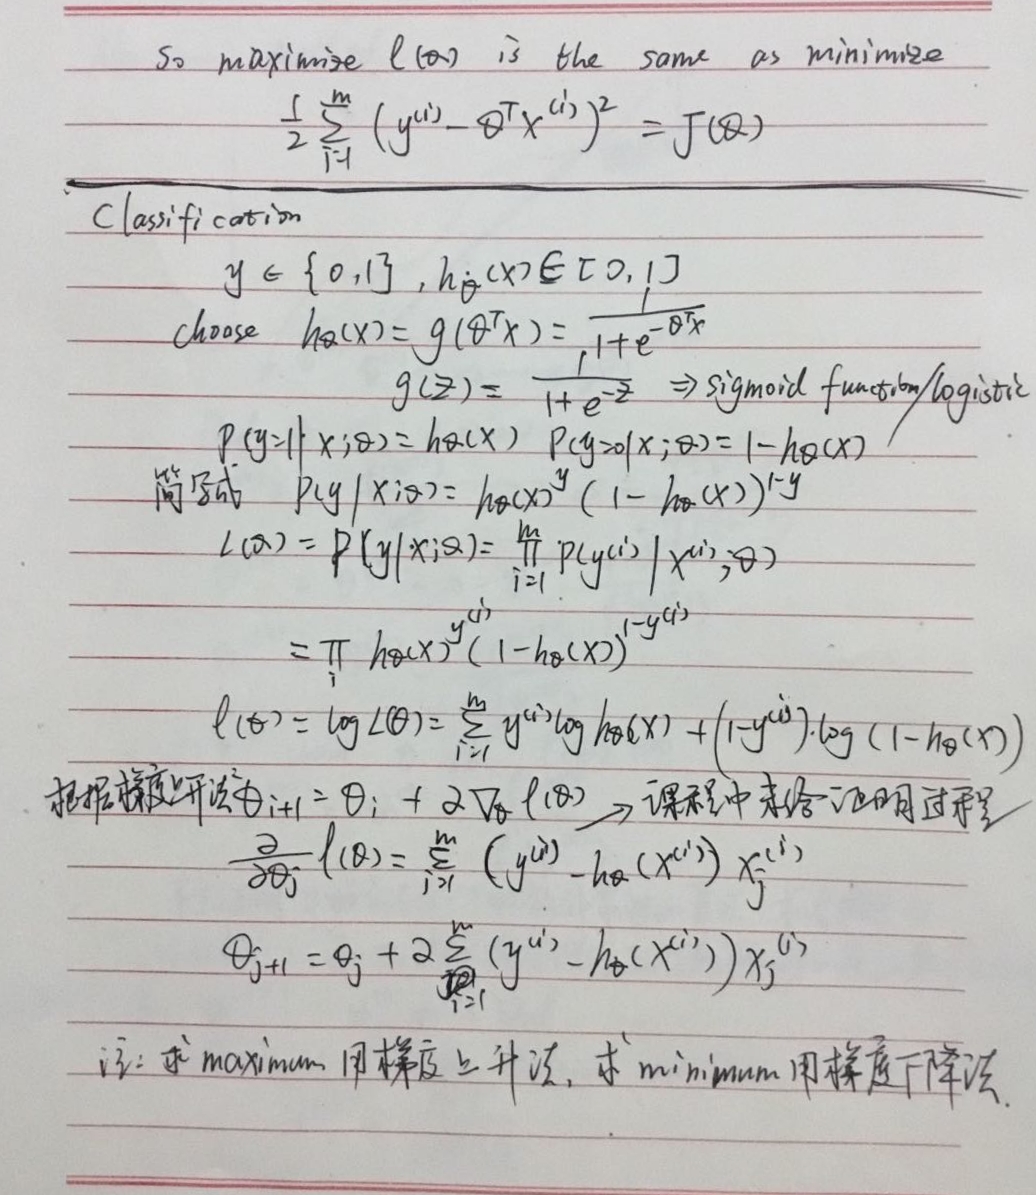 So maximize ℓ(θ) is the same as minimize
1/2 Σ_{i=1}^{m} (y^{(i)} - θ^T x^{(i)})^2 = J(θ)
Classification
y ∈ {0,1}, h_θ(x) ∈ [0,1]
choose h_θ(x) = g(θ^T x) = 1/(1+e^{-θ^T x})
g(z) = 1/(1+e^{-z}) ⇒ sigmoid function/logistic
P(y=1|x;θ) = h_θ(x) P(y=0|x;θ) = 1-h_θ(x)
简写成 P(y|x;θ) = h_θ(x)^y (1-h_θ(x))^{1-y}
L(θ) = P(y|x;θ) = Π_{i=1}^{m} P(y^{(i)}|x^{(i)};θ)
= Π_i h_θ(x)^{y^{(i)}} (1-h_θ(x))^{1-y^{(i)}}
ℓ(θ) = log L(θ) = Σ_{i=1}^{m} y^{(i)} log h_θ(x) + (1-y^{(i)})·log(1-h_θ(x))
根据梯度上升法: θ_{i+1} = θ_i + α∇_θ ℓ(θ) → 课程中未给证明过程
∂/∂θ_j ℓ(θ) = Σ_{i=1}^{m} (y^{(i)} - h_θ(x^{(i)})) x_j^{(i)}
θ_{j+1} = θ_j + α Σ_{i=1}^{m} (y^{(i)} - h_θ(x^{(i)})) x_j^{(i)}
注: 求 maximum 用梯度上升法, 求 minimum 用梯度下降法.